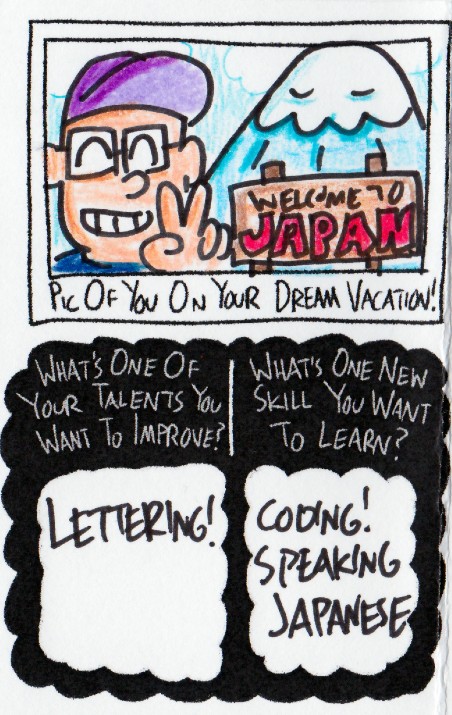 WELCOME TO
JAPAN
PIC OF YOU ON YOUR DREAM VACATION!
WHAT'S ONE OF
YOUR TALENTS YOU
WANT TO IMPROVE?
WHAT'S ONE NEW
SKILL YOU WANT
TO LEARN?
LETTERING!
CODING!
SPEAKING
JAPANESE